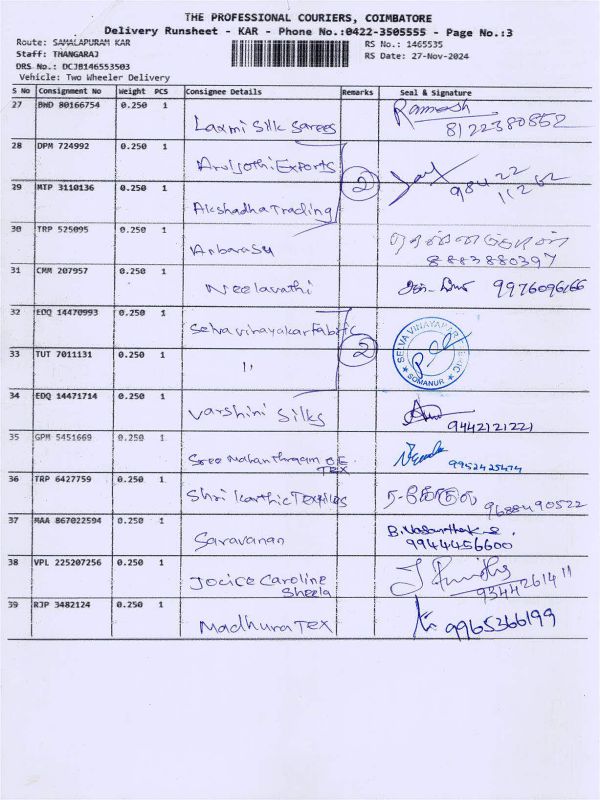 THE PROFESSIONAL COURIERS, COIMBATORE
Delivery Runsheet - KAR - Phone No.:0422-3505555 - Page No.:3
Route: SAMALAPURAM KAR
RS No.: 1465535
Staff: THANGARAJ
RS Date: 27-Nov-2024
DRS No.: DCJB146553503
Vehicle: Two Wheeler Delivery
S No Consignment No Weight PCS Consignee Details Remarks Seal & Signature
27 BWD 80166754 0.250 1 Laxmi Silk Sarees Ramesh
8122380852
28 DPM 724992 0.250 1 Aruljothi Exports
29 MTP 3110136 0.250 1 Akshadha Trading 2 98422
11262
30 TRP 525095 0.250 1 Anbarasu
8883880397
31 CMM 207957 0.250 1 Neelavathi 9976096166
32 EDQ 14470993 0.250 1 Selva vinayakar Fabrics
33 TUT 7011131 0.250 1 " 2 SELVA VINAYAKAR FABRIC
SOMANUR
34 EDQ 14471714 0.250 1 Varshini Silks
9442121221
35 GPM 5451669 0.250 1 Sree O.E.
TEX 9952425474
36 TRP 6427759 0.250 1 Shri Karthic Textiles 9688490522
37 MAA 867022594 0.250 1 Saravanan
9944456600
38 VPL 225207256 0.250 1 Jocice Caroline
Sheela 9344261411
39 RJP 3482124 0.250 1 Madhura TEX 9965366199